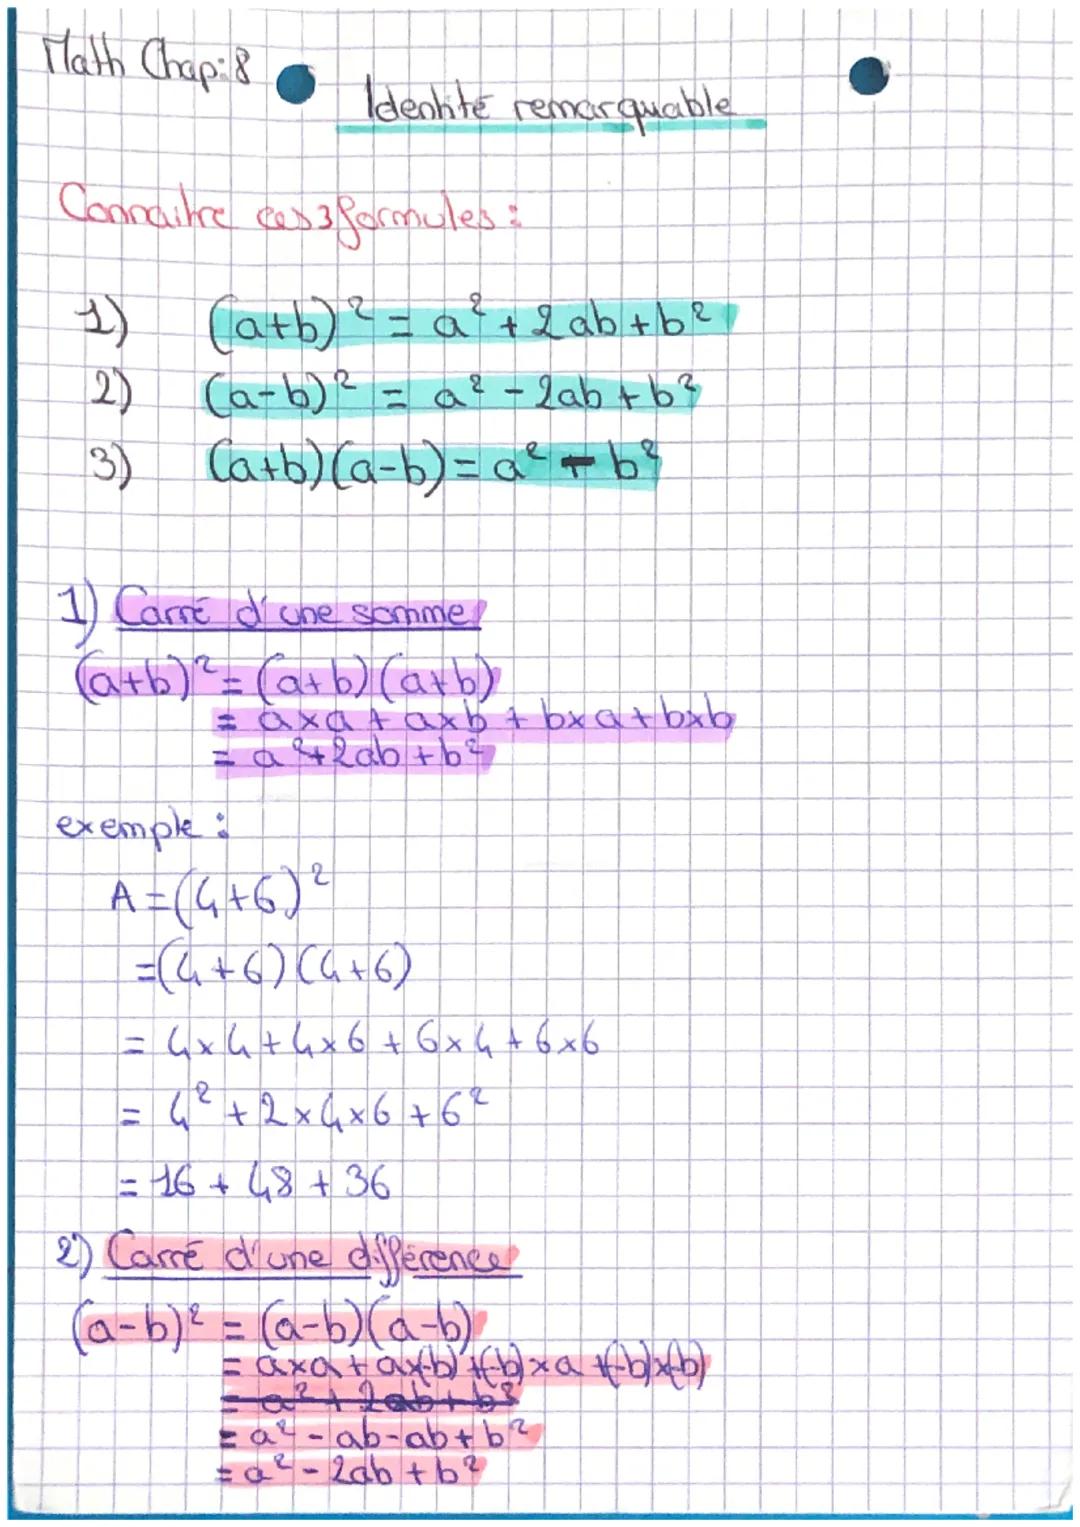 Math Chap:8
Identité remarquable
Connaitre ces 3 formules :
1) (a+b)² = a² + 2ab + b²
2) (a-b)² = a² - 2ab + b²
3) (a+b)(a-b) = a² - b²
1) Carré d'une somme
(a+b)² = (a+b)(a+b)
= axa + axb + bxa + bxb
= a² + 2ab + b²
exemple :
A = (4+6)²
= (4+6)(4+6)
= 4x4 + 4x6 + 6x4 + 6x6
= 4² + 2x4x6 + 6²
= 16 + 48 + 36
2) Carré d'une différence
(a-b)² = (a-b)(a-b)
= axa + ax(-b) + (-b)xa + (-b)x(-b)
= a² + 2ab + b²
= a² - ab - ab + b²
= a² - 2ab + b²